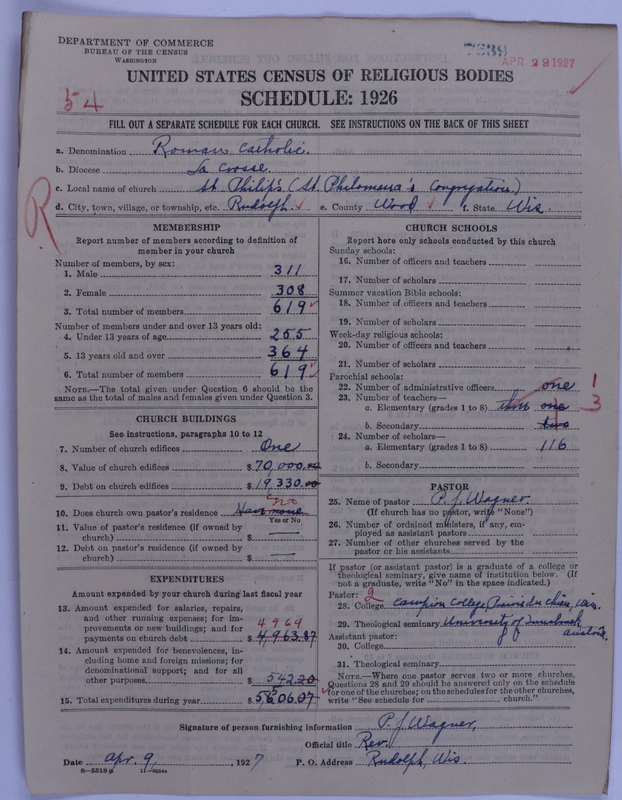 DEPARTMENT OF COMMERCE
BUREAU OF THE CENSUS
WASHINGTON
7539
APR 29 1927
UNITED STATES CENSUS OF RELIGIOUS BODIES
54
SCHEDULE: 1926
FILL OUT A SEPARATE SCHEDULE FOR EACH CHURCH. SEE INSTRUCTIONS ON THE BACK OF THIS SHEET
a. Denomination Roman Catholic.
b. Diocese La Crosse.
c. Local name of church St. Philip's (St. Philomena's Congregation.)
R
d. City, town, village, or township, etc. Rudolph e. County Wood f. State Wis.
MEMBERSHIP
Report number of members according to definition of
member in your church
Number of members, by sex:
1. Male 311
2. Female 308
3. Total number of members 619
Number of members under and over 13 years old:
4. Under 13 years of age 255
5. 13 years old and over 364
6. Total number of members 619
NOTE.—The total given under Question 6 should be
the same as the total of males and females given under Question 3.
CHURCH BUILDINGS
See instructions, paragraphs 10 to 12
7. Number of church edifices One
8. Value of church edifices $ 70,000.00
9. Debt on church edifices $ 19,330.00
no
10. Does church own pastor's residence Have none
Yes or No
11. Value of pastor's residence (if owned by
church) $
12. Debt on pastor's residence (if owned by
church) $
EXPENDITURES
Amount expended by your church during last fiscal year
13. Amount expended for salaries, repairs,
and other running expenses; for im-
provements or new buildings; and for
4964
payments on church debt $ 4,963.87
14. Amount expended for benevolences, in-
cluding home and foreign missions; for
denominational support; and for all
other purposes $ 542.20
15. Total expenditures during year $ 5506.07
CHURCH SCHOOLS
Report here only schools conducted by this church
Sunday schools:
16. Number of officers and teachers
17. Number of scholars
Summer vacation Bible schools:
18. Number of officers and teachers
19. Number of scholars
Week-day religious schools:
20. Number of officers and teachers
21. Number of scholars
Parochial schools:
22. Number of administrative officers one 1
23. Number of teachers—
a. Elementary (grades 1 to 8) three one 3
b. Secondary two
24. Number of scholars—
a. Elementary (grades 1 to 8) 116
b. Secondary
PASTOR
25. Name of pastor P. J. Wagner.
(If church has no pastor, write "None")
26. Number of ordained ministers, if any, em-
ployed as assistant pastors
27. Number of other churches served by the
pastor or his assistants
If pastor (or assistant pastor) is a graduate of a college or
theological seminary, give name of institution below. (If
not a graduate, write "No" in the space indicated.)
Pastor: 2
28. College Campion College Prairie du Chien, Wis.
29. Theological seminary University of Innsbruck
Assistant pastor: Austria.
30. College
31. Theological seminary
NOTE.—Where one pastor serves two or more churches,
Questions 28 and 29 should be answered only on the schedule
for one of the churches; on the schedules for the other churches,
write "See schedule for church."
Signature of person furnishing information P. J. Wagner,
Official title Rev.
Date Apr. 9, 1927 P. O. Address Rudolph, Wis.